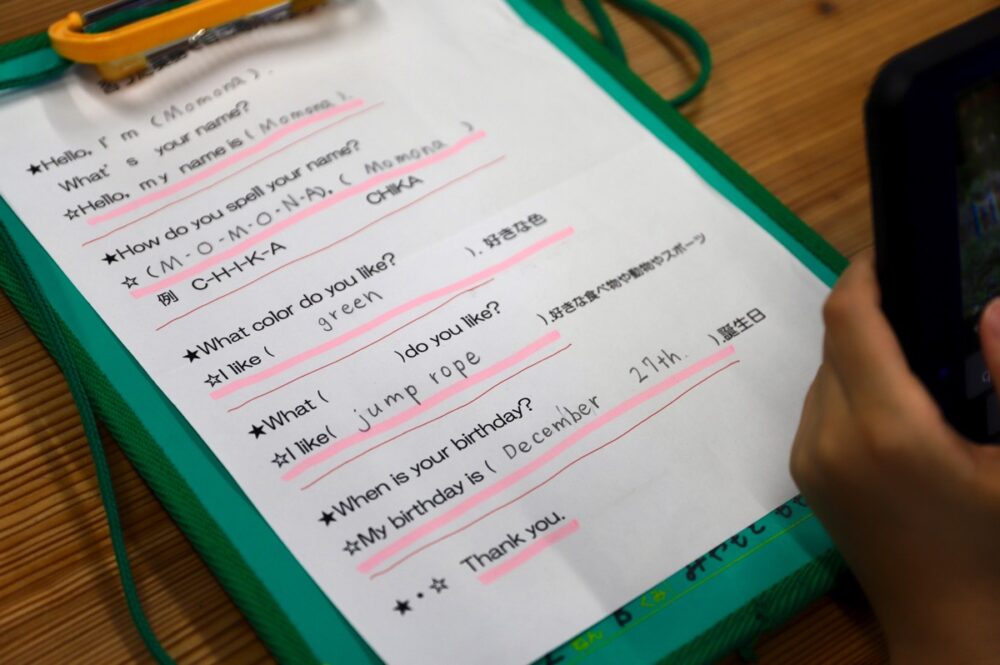 ★Hello, I'm (Momona).
What's your name?
☆Hello, my name is (Momona).
★How do you spell your name?
☆(M-O-M-O-N-A), (Momona)
例 C-H-I-K-A CHIKA
★What color do you like?
☆I like (green). 好きな色
★What ( )do you like?
☆I like(jump rope).好きな食べ物や動物やスポーツ
★When is your birthday?
☆My birthday is (December 27th.).誕生日
★・☆ Thank you.
ねん B くみ みやもと